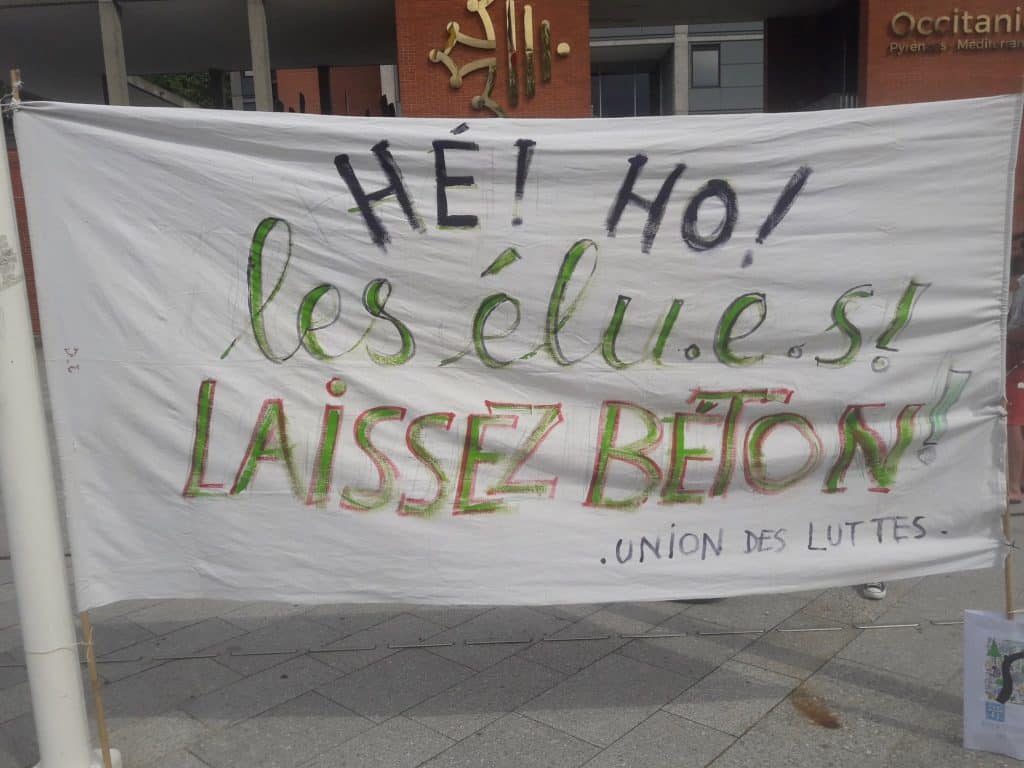 Occitani
Pyrénées Méditerran
HÉ! HO!
les élu.e.s!
LAISSEZ BÉTON!
.UNION DES LUTTES.